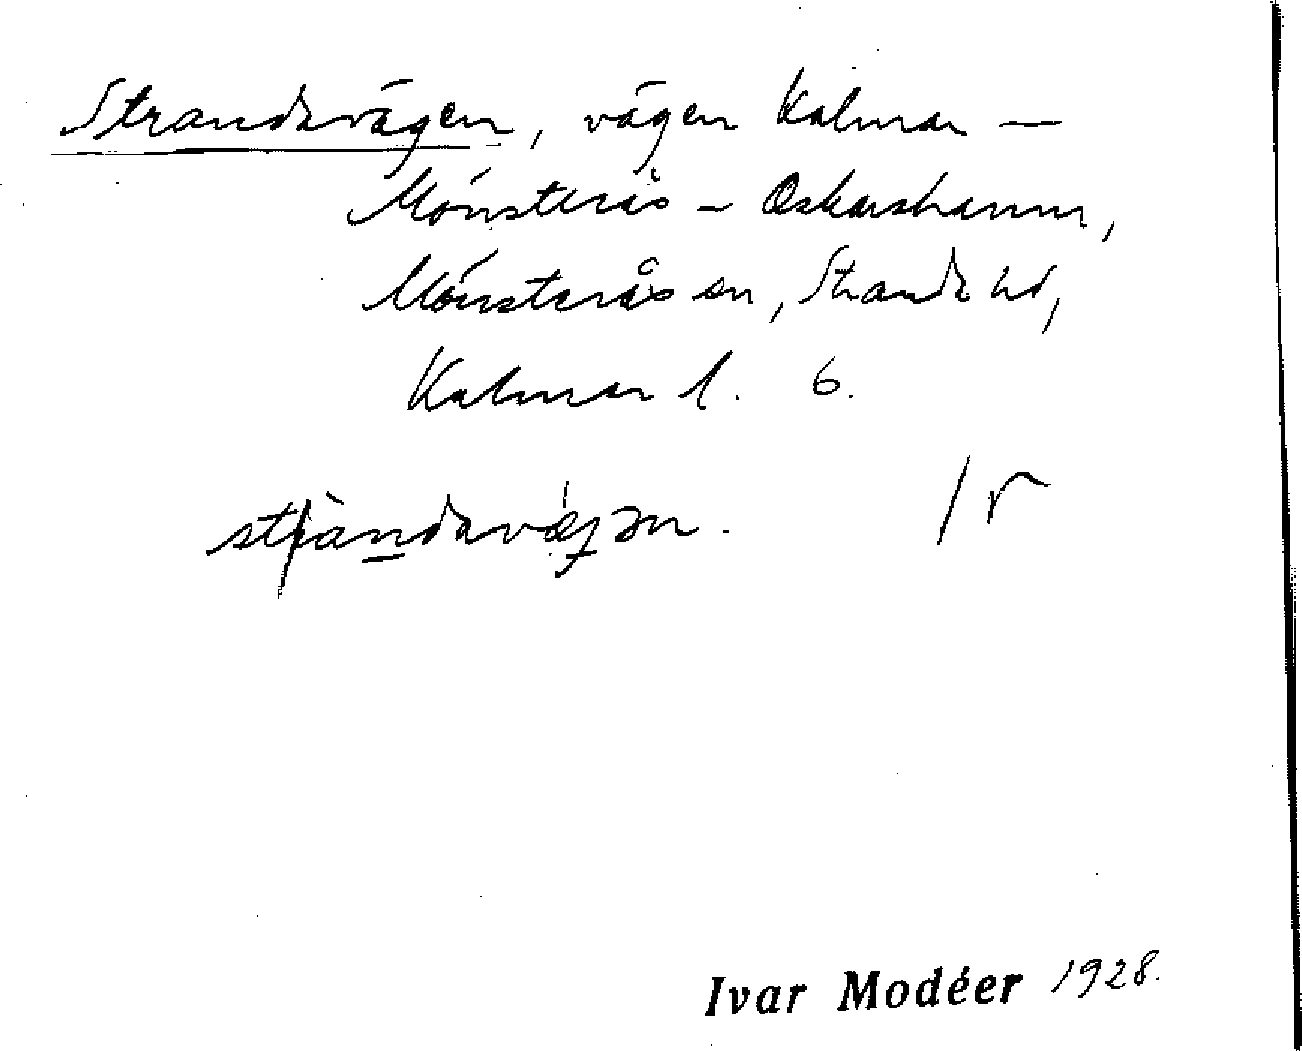 Strandavägen, vägen Kalmar —
Mönsterås – Oskarshamn,
Mönsterås sn, Stranda hd,
Kalmar l. 6.
Ivar Modéer 1928.